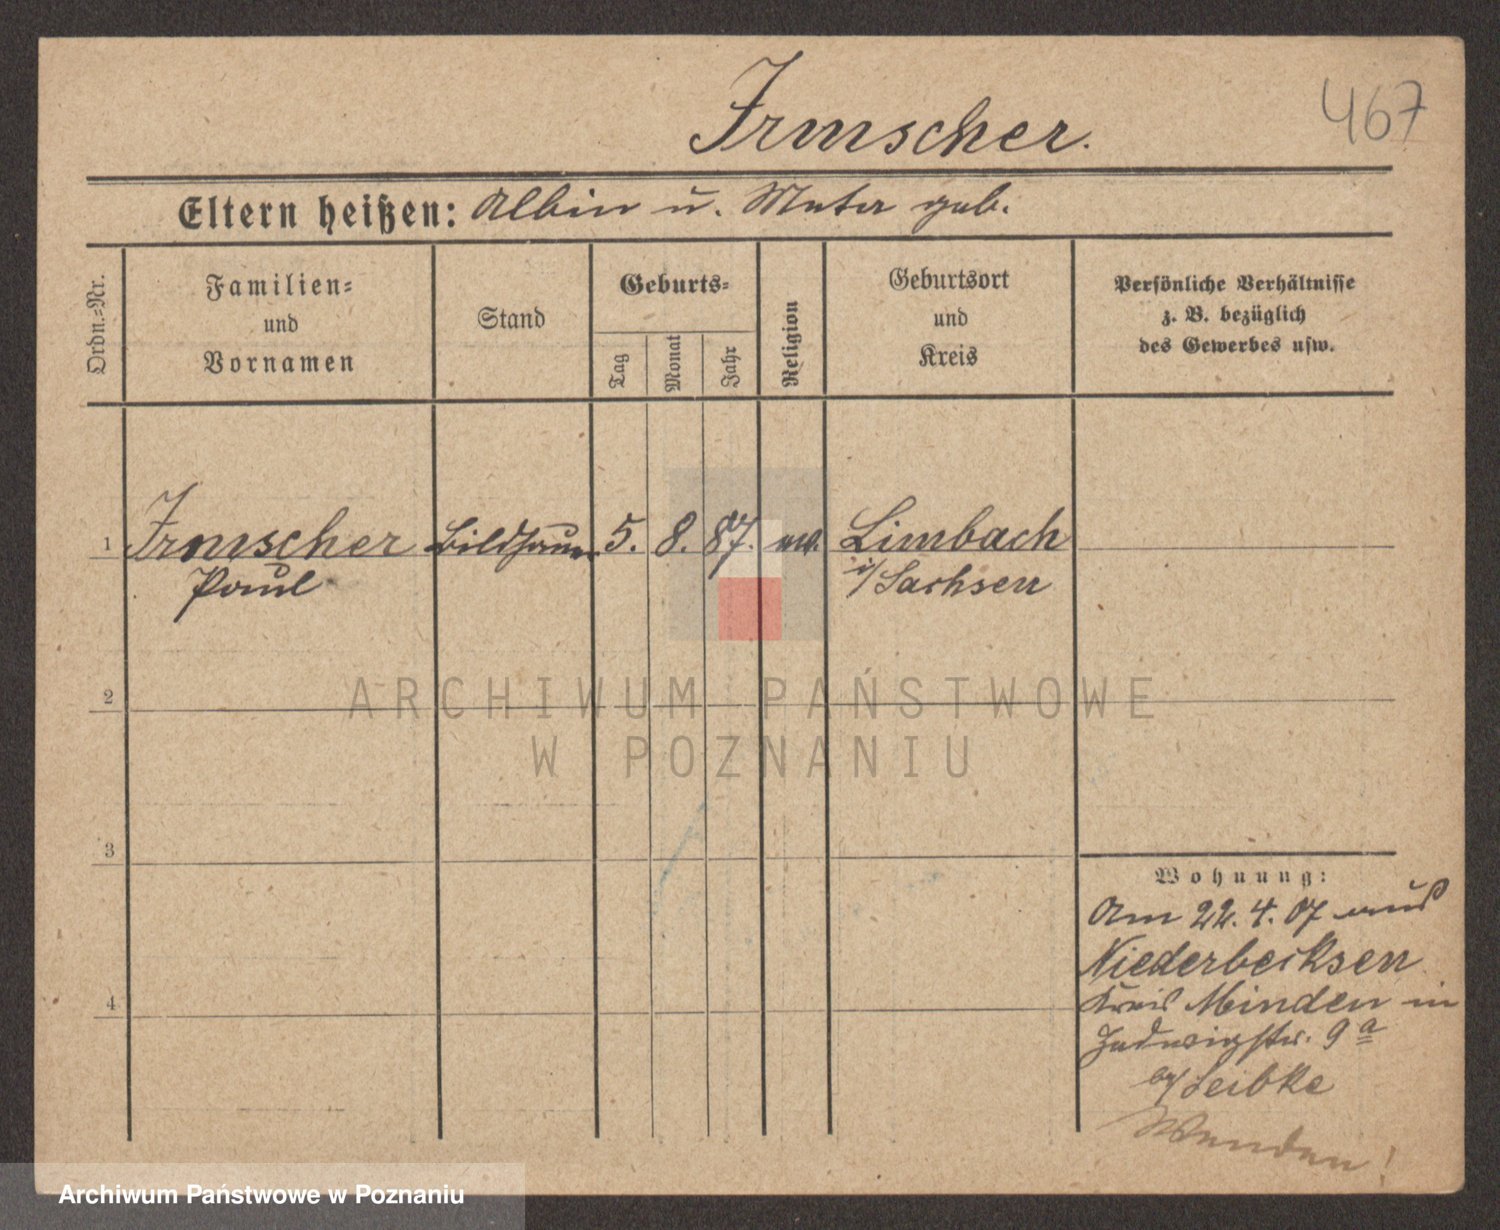 467
Irmscher.
Eltern heißen: Albin u. Meta geb.
Ordn.=Nr.
Familien=
und
Vornamen
Stand
Geburts=
Tag
Monat
Jahr
Religion
Geburtsort
und
Kreis
Persönliche Verhältnisse
z. B. bezüglich
des Gewerbes usw.
1 Irmscher Bildhauer 5. 8. 87. ev. Limbach
Paul i/Sachsen
ARCHIWUM PAŃSTWOWE
W POZNANIU
2
3
4
Wohnung:
Am 22.4.07 aus
Niederbecksen
Kreis Minden in
Hedwigstr. 9a
b/ Leibke
Wenden!
Archiwum Państwowe w Poznaniu